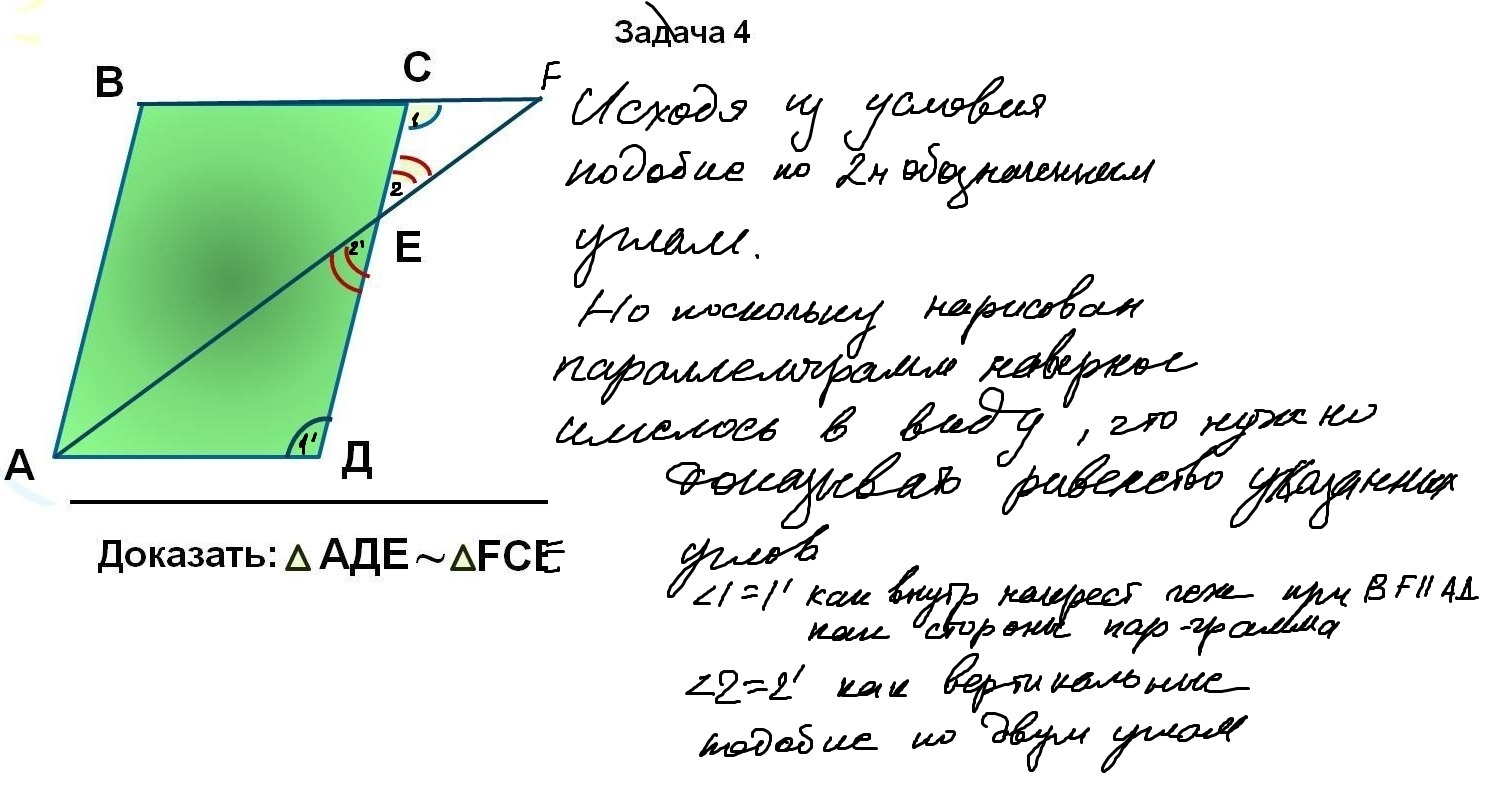 Задача 4
B
C
F
1
2
2'
E
1'
A
Д
Доказать: △ АДЕ ~ △ FCE
Исходя из условия
подобие по 2м обозначенным
углам.
Но поскольку нарисован
параллелограмм наверное
имелось в виду, что нужно
доказывать равенство указанных
углов
∠1=1' как внутр накрест леж при BF||АД
как стороны пар-грамма
∠2=2' как вертикальные
подобие по двум углам